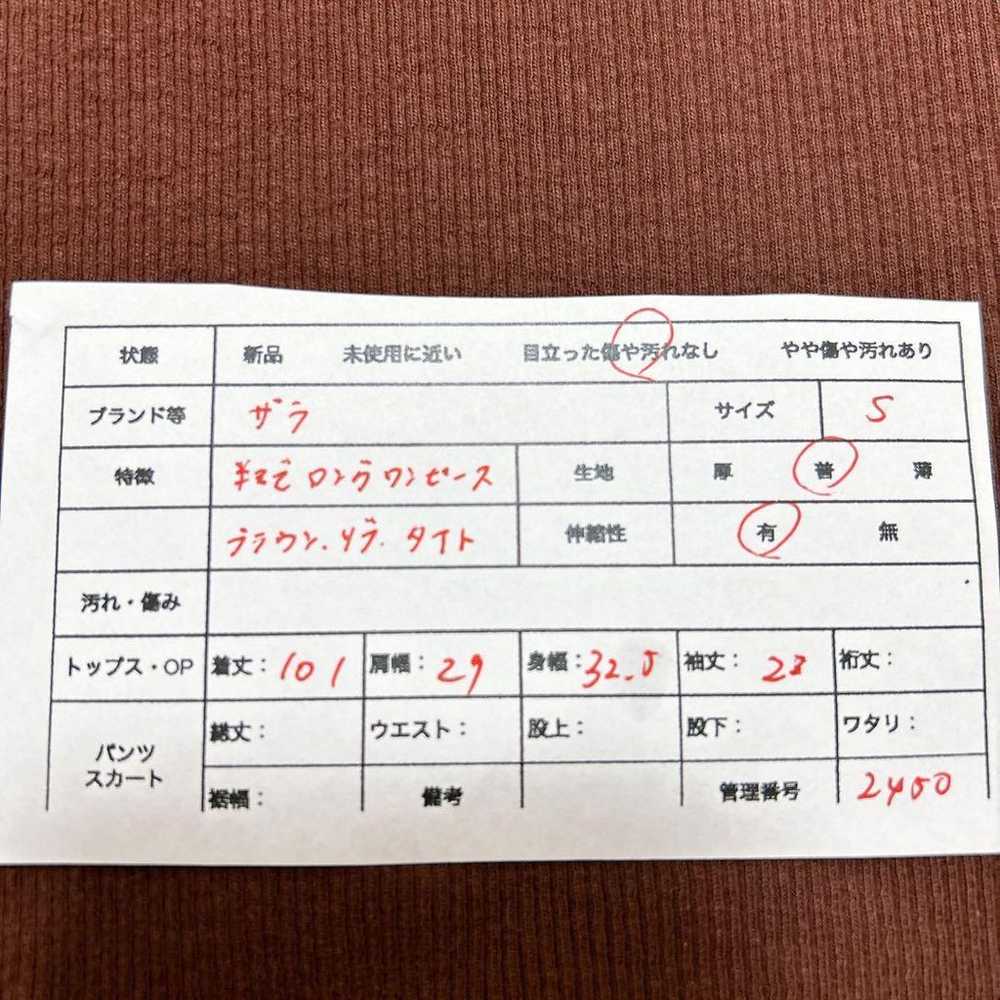 状態 新品 未使用に近い 目立った傷や汚れなし やや傷や汚れあり
ブランド等 ザラ サイズ S
特徴 半そで ロング ワンピース 生地 厚 普 薄
ブラウン.リブ.タイト 伸縮性 有 無
汚れ・傷み
トップス・OP 着丈：101 肩幅：29 身幅：32.5 袖丈：23 裄丈：
パンツ スカート 総丈： ウエスト： 股上： 股下： ワタリ：
裾幅： 備考 管理番号 2450